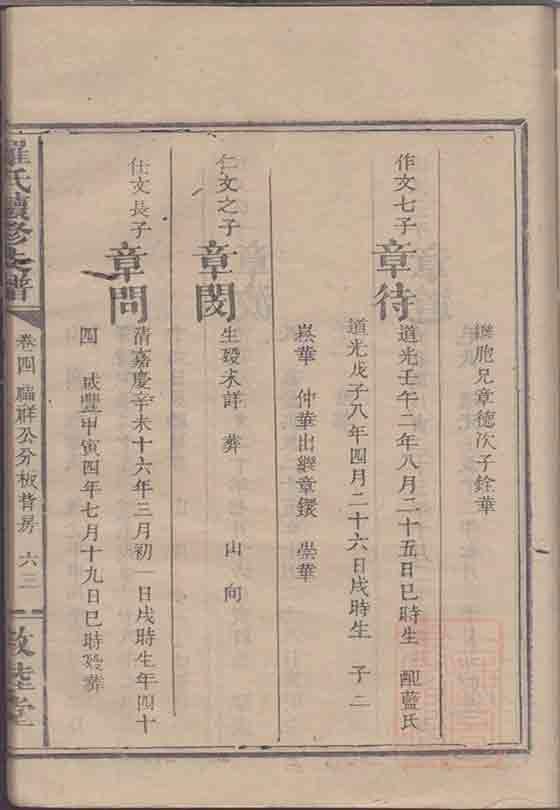 繼胞兄章德次子銓華
作文七子
章待
道光壬午二年八月二十五日巳時生 配藍氏
道光戊子八年四月二十六日戌時生 子二
崧華 仲華出繼章鑁 崇華
仁文之子
章閔
生歿未詳 葬 山 向
仕文長子
章問
清嘉慶辛未十六年三月初一日戌時生年四十
四 咸豐甲寅四年七月十九日巳時歿葬
羅氏續修支譜
卷四 福祥公分板背房 六三
敦睦堂